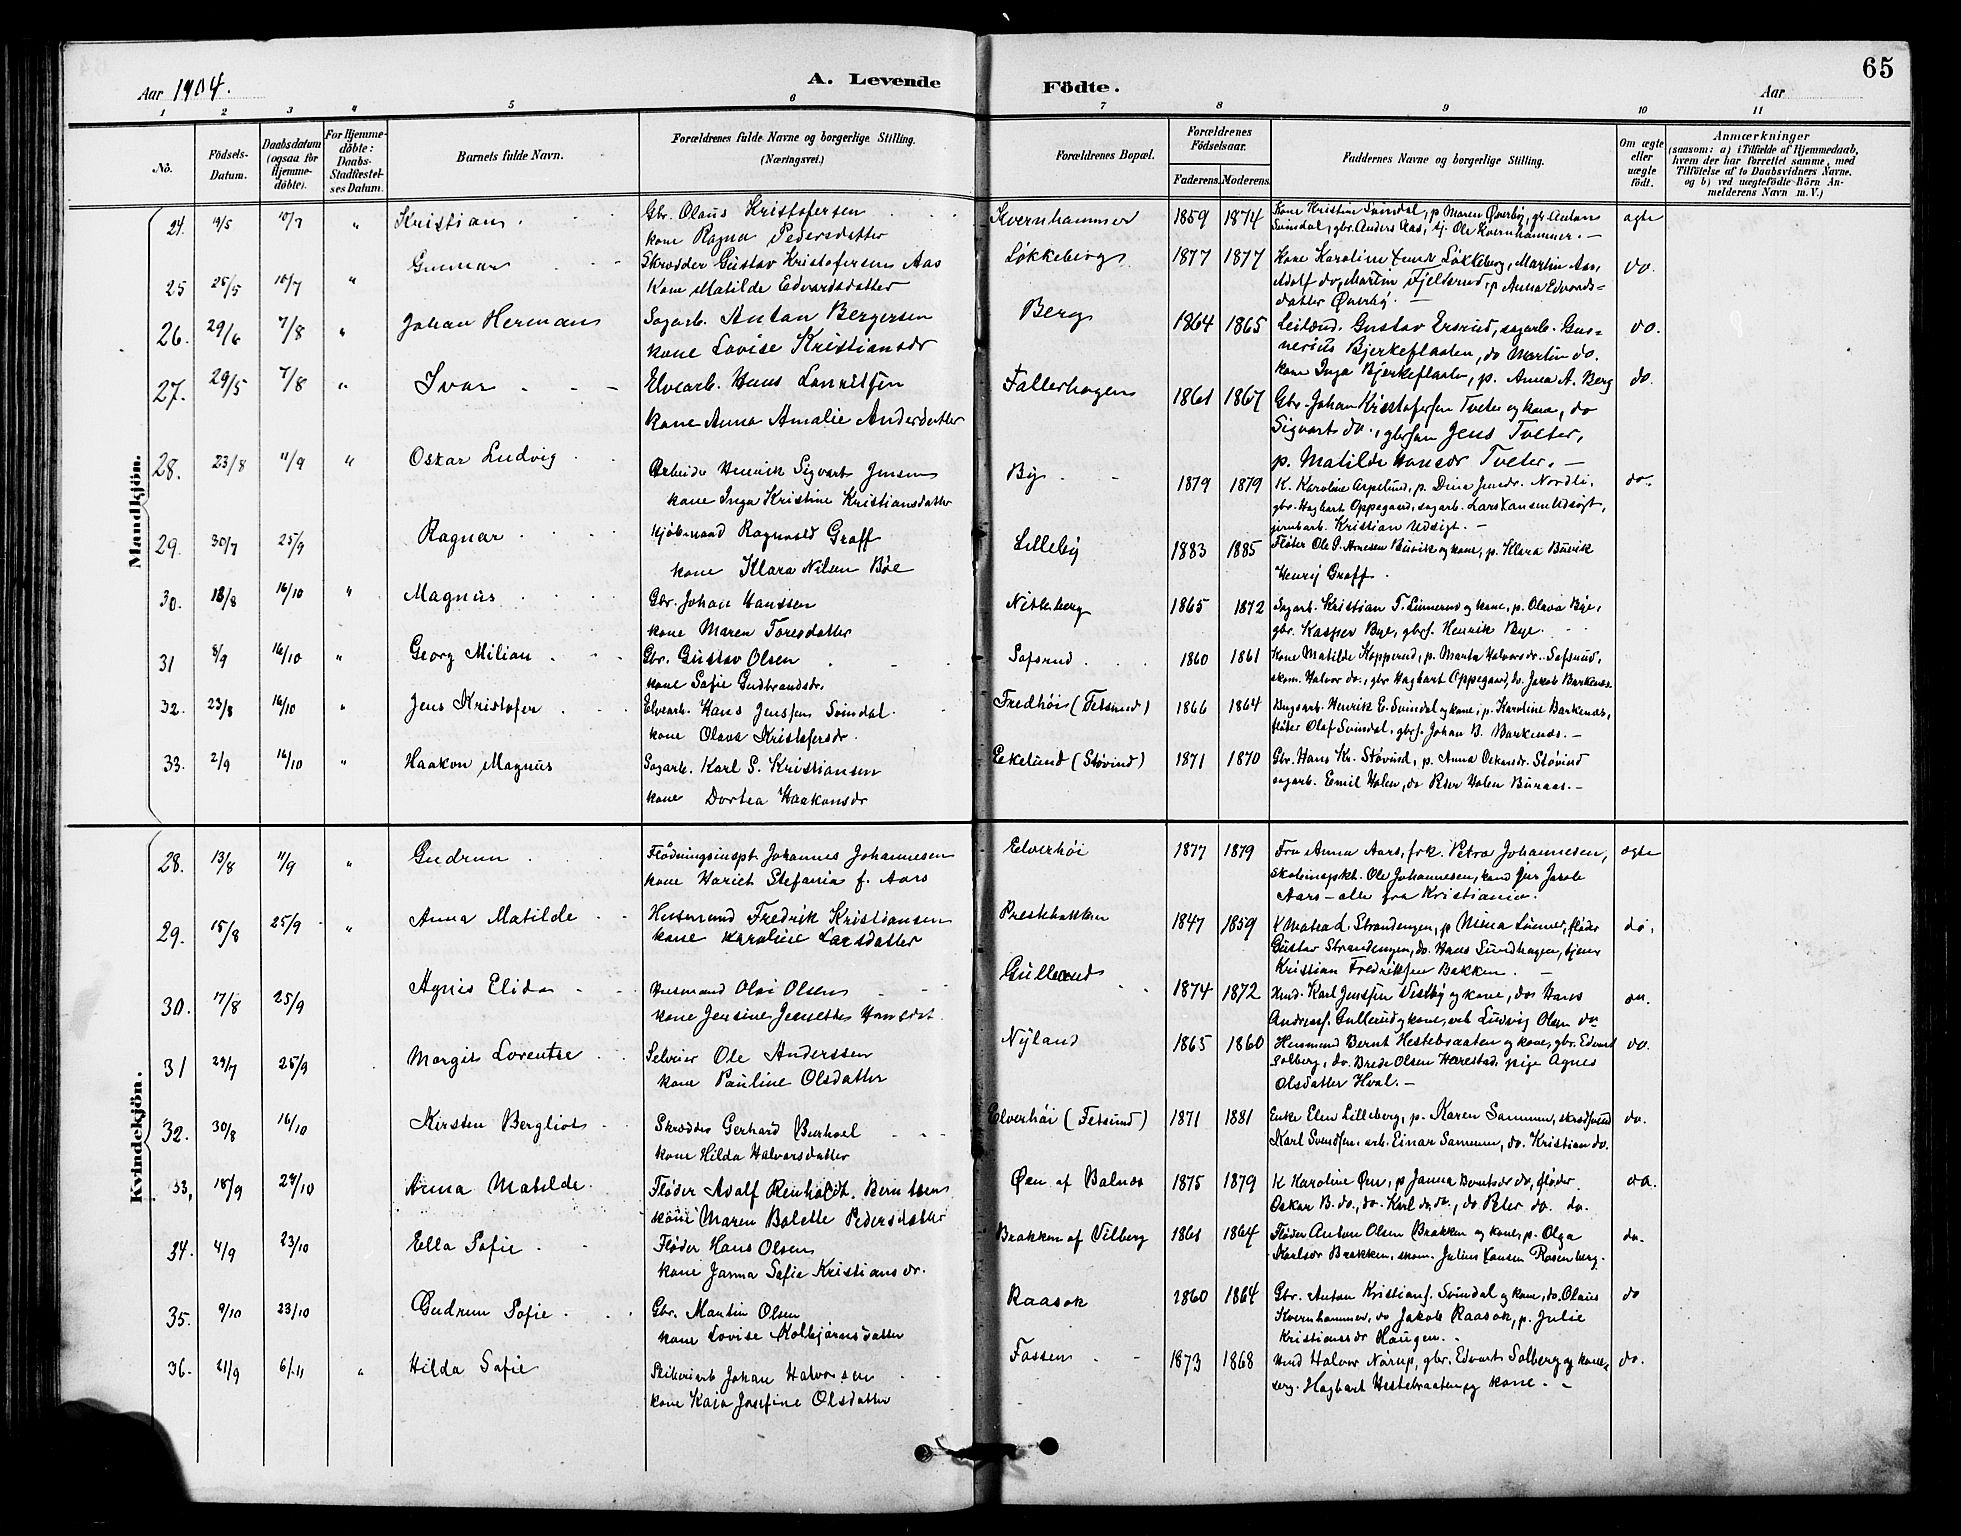 65
Aar 1904.
A. Levende Födte.
Aar
1 2 3 4 5 6 7 8 9 10 11
No.
Födsels-Datum.
Daabsdatum (ogsaa for Hjemme-döbte).
For Hjemme-döbte: Daabs-Stadfæstel-ses Datum.
Barnets fulde Navn.
Forældrenes fulde Navne og borgerlige Stilling. (Næringsvei.)
Forældrenes Bopæl.
Forældrenes Födselsaar.
Faderens. Moderens.
Faddernes Navne og borgerlige Stilling.
Om ægte eller uægte födt.
Anmærkninger
(saasom: a) i Tilfælde af Hjemmedaab, hvem der har forrettet samme, med Tilföielse af to Daabsvidners Navne, og b) ved uægtefödte Börn An-melderens Navn m. V.)
Mandkjön.
24. 19/5 10/7 " Kristian. Gbr. Olaus Kristofersen Kvernhammer 1859 1874 Kone Kristine Svindal, p. Maren Øverby, gbr. Anton ægte
kone Ragna Pedersdatter Svindal, gbr. Anders Aas, tj. Ole Kvernhammer. —
25 25/5 10/7 " Gunnar Skrædder Gustav Kristofersen Aas Løkkeberg 1877 1877 Kone Karoline Løkkeberg, Martin Aas, do.
Kone Matilde Edvardsdatter Adolf do, Martin Fjeldsrud, p. Anna Edvards-
datter Øverby. —
26. 29/6 7/8 " Johan Herman Sagarb. Anton Bergersen Berg 1864 1865 Leilænd. Gustav Ersrud, sagarb. Gun- do.
kone Lovise Kristiansdr nerius Bjerkeflaaten, do Martin do.
kone Inga Bjerkeflaaten, p. Anna A. Berg
27. 29/5 7/8 " Ivar Elvearb. Hans Lauritsen Fallerhagen 1861 1867 Gbr. Johan Kristofersen Tveter og kone, do do.
kone Anna Amalie Andersdatter Sigvart do., gbrsøn Jens Tveter,
p. Matilde Hansdr Tveter. —
28. 23/8 11/9 " Oskar Ludvig Arbeider Henrik Sigvart Jensen By 1879 1879 K. Karoline Aspelund, p. Dina Jensdr. Nordli, do.
kone Inga Kristine Kristiansdatter gbr. Hagbart Oppegaard, sagarb. Lars Hansen Udsigt,
jernbarb. Kristian Udsigt. —
29. 30/7 25/9 Ragnar Kjøbmand Ragnvald Graff Lilleby 1883 1885 Fløter Ole P. Arnesen Buvik og kone, p. Klara Buvik
kone Klara Nilsen Bøe Henry Graff.
30. 18/8 16/10 " Magnus Gbr. Johan Hanssen Nitteberg 1865 1872 Sagarb. Kristian T. Linnerud og kone, p. Olava Bye,
kone Maren Toresdatter gbr. Kasper Bye, gbrs. Henrik Bye.
31 8/9 16/10 " Georg Milian Gbr. Gustav Olsen Sofsrud 1860 1861 Kone Matilde Kopperud, p. Marta Halvorsdr. Sofsrud,
kone Sofie Gudbrandsdr. skom. Halvor do., gbr Hagbart Oppegaard, do. Jakob Barkenæs.
32. 23/8 16/10 " Jens Kristofer Elvearb. Hans Jenssen Svindal Fredhöi (Fetsund) 1866 1864 Brugsarb. Henrik E. Svindal og kone, p. Karoline Barkenæs,
kone Olava Kristofersdr. fløter Olaf Svindal, gbrs. Johan B. Barkenæs. —
33. 2/9 16/10 " Haakon Magnus Sagarb. Karl S. Kristiansen Ekelund (Støvind) 1871 1870 Gbr. Hans Kr. Støvind, p. Anna Oskarsdr. Støvind
kone Dortea Haakonsdr sagarb. Emil Holen, do Peter Holen Buraas. —
Kvindekjön.
28. 13/8 11/9 " Gudrun Flødningsinspt. Johannes Johannesen Elverhöi 1877 1879 Fru Anna Aars, frk. Petra Johannesen, ægte
kone Hariet Stefania f. Aars Ole Johannesen, kand. jur Jacob
Aars — alle fra Kristiania.
29. 15/8 25/9 " Anna Matilde Husmand Fredrik Kristiansen Prestebakken 1847 1859 K Matea L. Strandengen, p Mina Linner, fløder do.
kone Karoline Larsdatter Gustav Strandengen, do. Hans Sundhagen, tjener
Kristian Fredriksen Bakken. —
30. 17/8 25/9 Agnes Elida Husmand Olai Olsen Gullerud 1874 1872 Hmd. Karl Jenssen Vestby og kone, do Hans do.
kone Jensine Jeanette Hansdat. Andreasf. Gullerud og kone, arb Ludvig Olsen do
31 29/7 25/9 Margit Lorentse Selveier Ole Anderssen Nyland 1865 1860 Husmand Bernt Hestebraaten og kone, gbr. Edvart do.
kone Pauline Olsdatter Solberg, do. Brede Olsen Harestad, pige Agnes
Olsdatter Hval. —
32. 30/8 16/10 Kirsten Bergliot Skrædder Gerhard Burholt Elverhöi (Fetsund) 1871 1881 Enke Elen Lilleberg, p. Karen Sammen, do.
kone Hilda Halvorsdatter Karl Svendsen, arb. Einar Sammen, do. Kristian do.
33, 18/9 29/10 Anna Matilde Fløder Adolf Reinholdt Berntsen Øen af Balnes 1875 1879 K Karoline Øen, p Janna Berntsdr do, fløder do.
kone Maren Bolette Pedersdatter Oskar B. do., do. Karl do. do., do Peter do. do.
34. 4/9 23/10 Ella Sofie Fløder Hans Olsen Brakken af Vilberg 1861 1864 Fløder Anton Olsen Brakken og kone, p. Olga do.
kone Janna Sofie Kristiansdr. Karlsdr Brakken, skom. Julius Hansen Rosenberg.
35. 9/10 23/10 Gudrun Sofie Gbr. Martin Olsen Raasok 1860 1864 Gbr. Anton Kristiansf. Svindal og kone, do. Olaus do
kone Lovise Kolbjørnsdatter Kvernhammer, do Jakob Raasok, p. Julie
Kristiansdr Haugen. —
36. 21/9 6/11 " Hilda Sofie Johan Halvorsen Fossen 1873 1868 Hmd Halvor Norup, gbr. Edvart Solberg og kone, do.
kone Kaja Josefine Olsdatter Hagbart Hestebraaten og kone. —